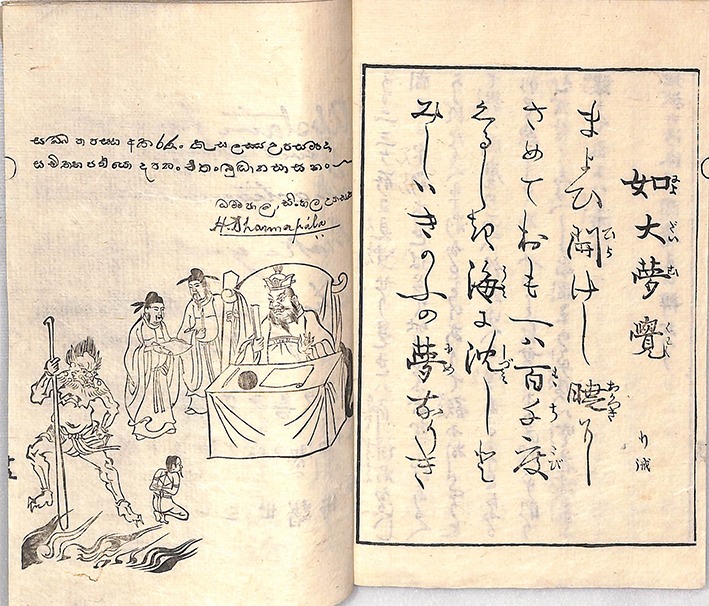 如大夢覺
行誡
まよひ開けし暁に
さめておもへハ百千度
くるしき海に沈しと
みしハきのふの夢なりき
සබ්බ පාපස්ස අකරණං කුසලස්ස උපසම්පදා
සචිත්ත පරියොදපනං එතං බුද්ධානසාසනං
ධම්මපාල, සිංහල
H. Dharmapala